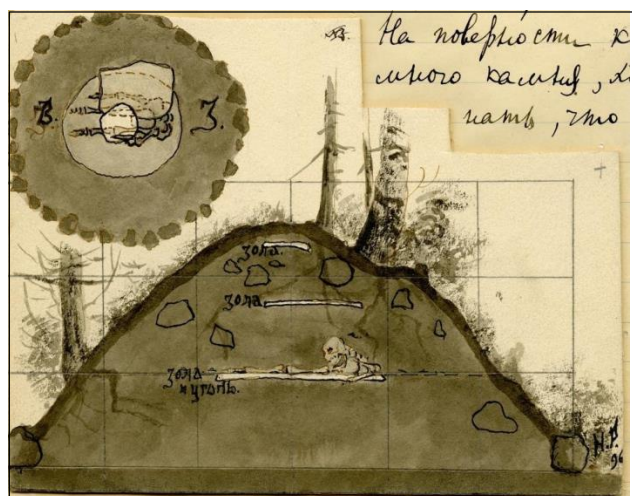 На поверхности к
много камня,
нать, что
В.
З.
зола.
зола
зола
и уголь.
Н.Р.
96